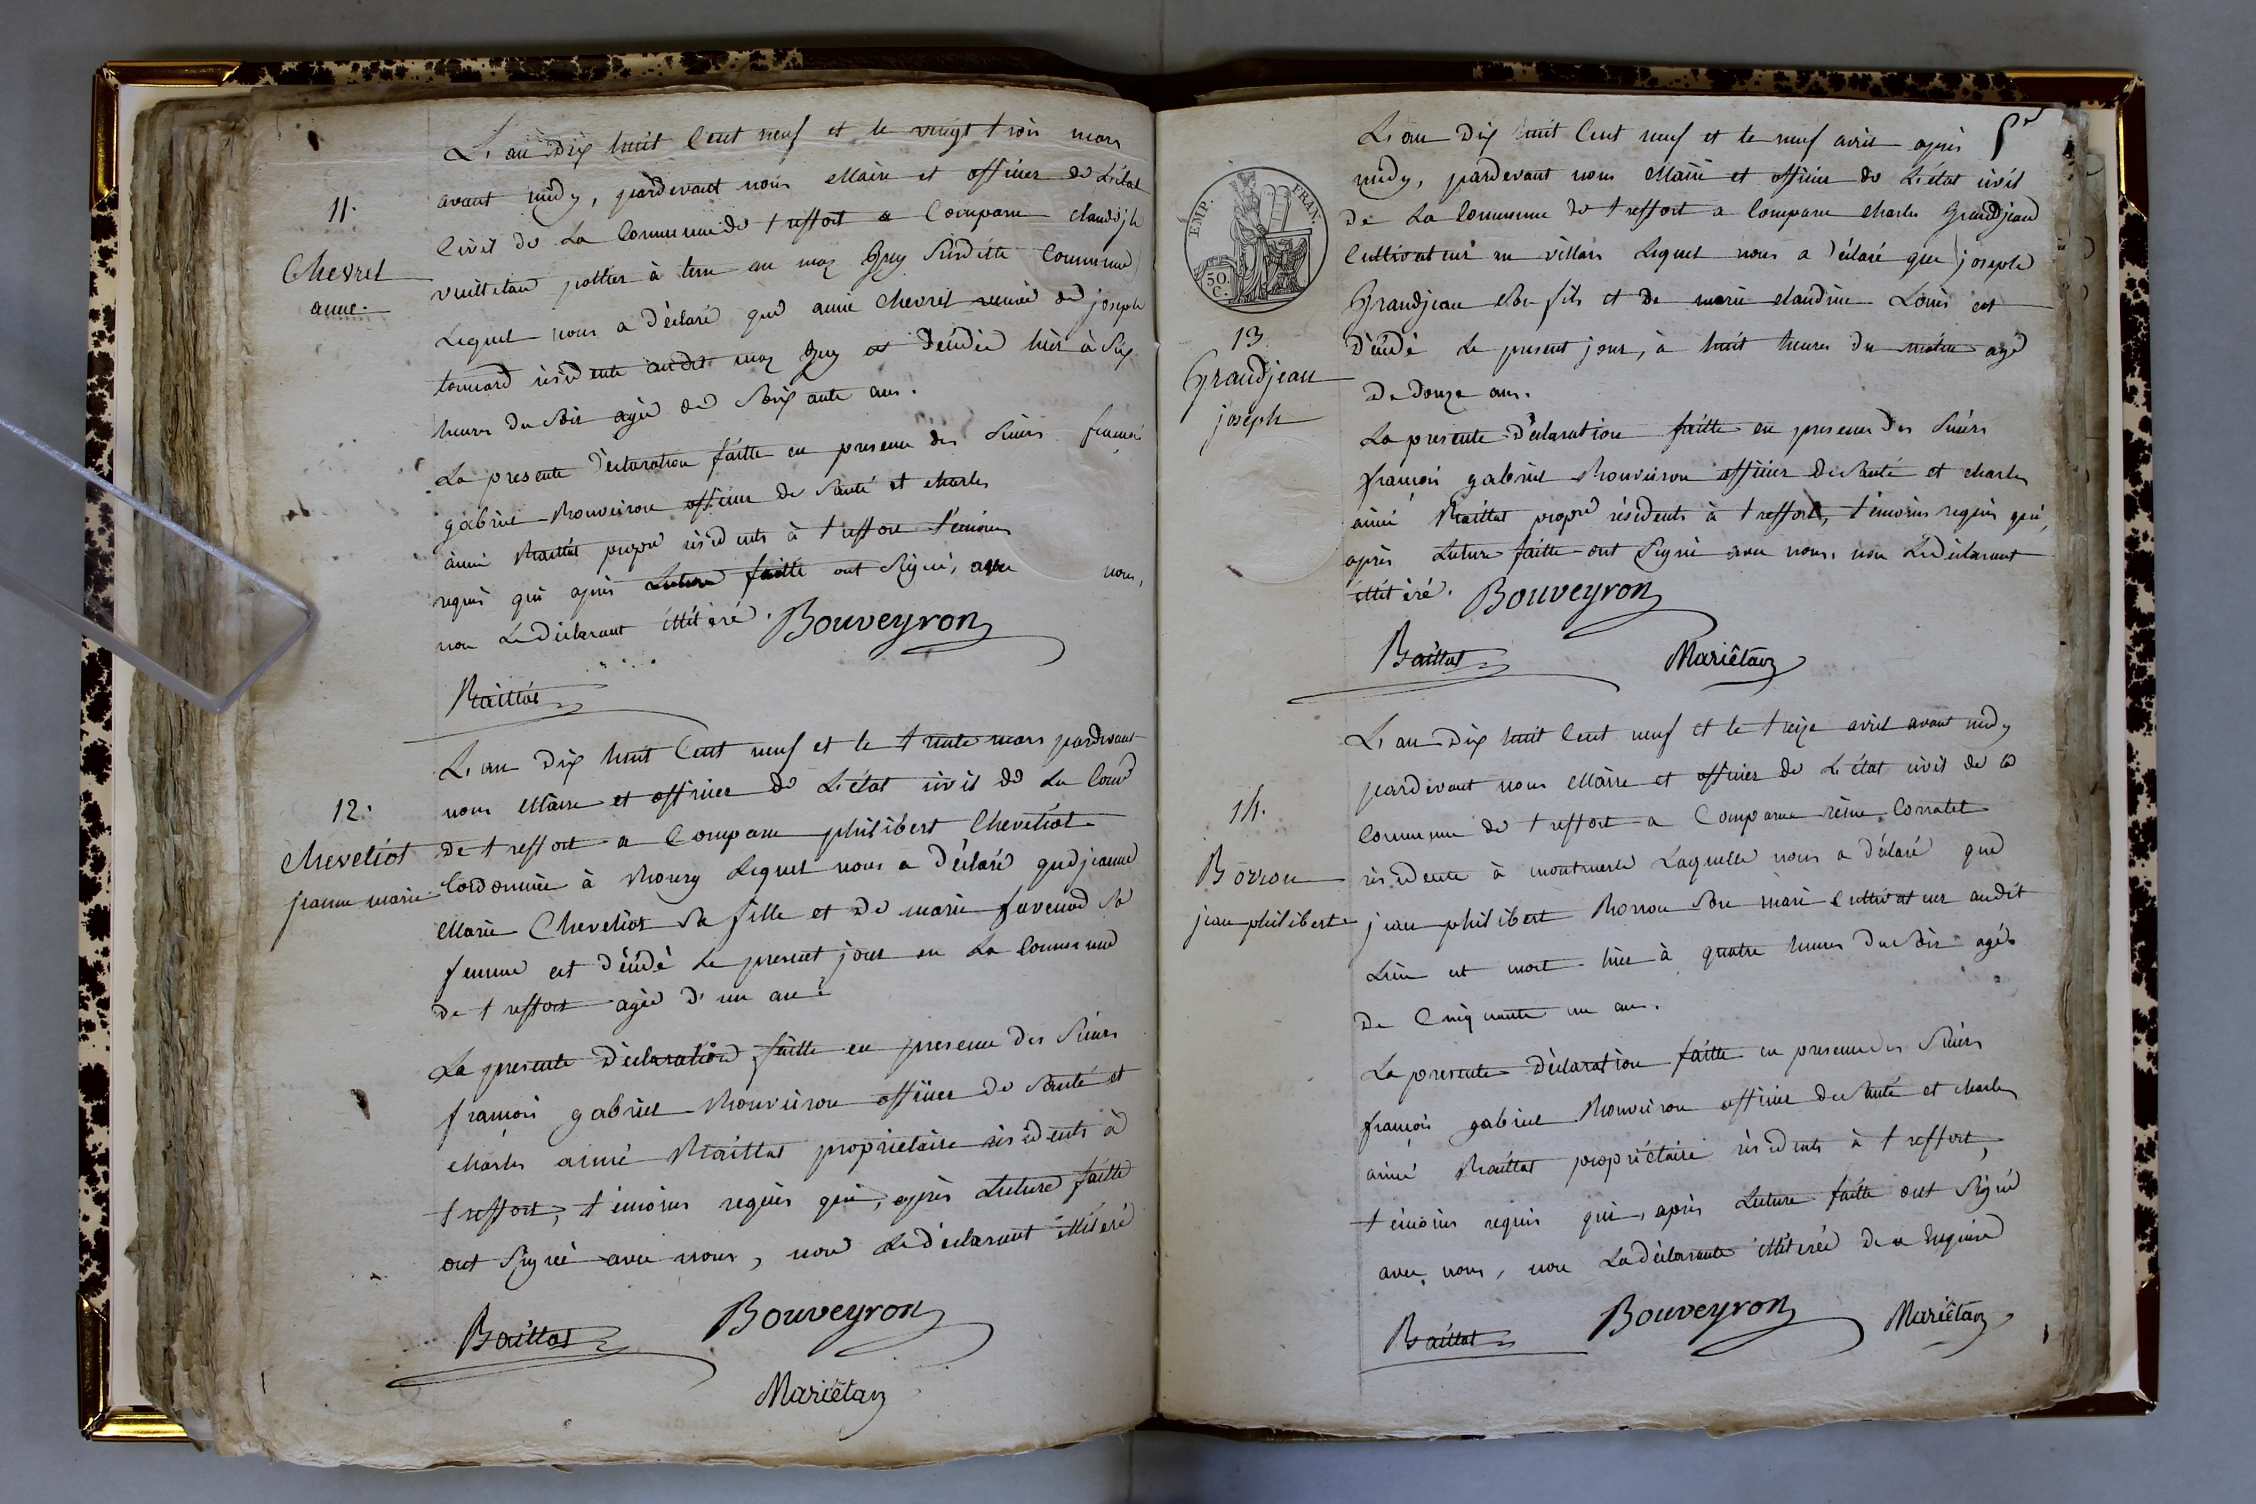 11.
Chevret
anne.
L'an Dix huit Cent neuf et le vingt trois mars
avant midy, pardevant nous Maire et officier de L'état
Civil de La Commune de treffort a Comparu
pottier à terre au mas Guy Susditte Commune
Lequel nous a Déclaré que anne Chevret veuve de joseph
résidente audit mas Guy est Décédée hier à Six
heures du Soir agée de Soixante ans.
La presente Déclaration faitte en presence des Sieurs françois
gabriel Bouveiron officier de Santé et charles
aimé Baillat propre résidents à treffort témoins
requis qui après Lecture faitte ont Signé, avec nous,
non Le Déclarant illitéré. Bouveyron
Baillat
12.
Cheveliot
jeanne marie
L'an Dix huit Cent neuf et le trente mars pardevant
nous Maire et officier de L'état civil de La Come
de treffort a Comparu philibert Cheveliot
Cordonnier à Lequel nous a Déclaré que jeanne
Marie Cheveliot Sa fille et de marie Sa
femme est Décédé Le present jour en La Commune
de treffort agée D'un an.
La presente Déclaration faitte en presence des Sieurs
françois gabriel Bouveiron officier de Santé et
charles aimé Baillat propriétaire résidents à
treffort, témoins requis qui, après Lecture faitte
ont Signé avec nous, non Le Déclarant illitéré
Baillat Bouveyron
Mariétan
EMP. FRAN.
50. C.
13
Grandjean
joseph
L'an Dix huit Cent neuf et le neuf avril après
midy, pardevant nous Maire et officier de L'état civil
de La Commune de treffort a Comparu charles Grandjean
Cultivateur au villars Lequel nous a Déclaré que joseph
Grandjean Son fils et de marie claudine Louis est
Décédé Le present jour, à huit heures du matin agé
De Douze ans.
La presente Déclaration faitte en presence des Sieurs
françois gabriel Bouveiron officier de Santé et charles
aimé Baillat propre résidents à treffort, témoins requis qui,
après Lecture faitte ont Signé avec nous, non Le déclarant
illitéré. Bouveyron
Baillat Mariétan
14.
Borron
jean philibert
L'an Dix huit Cent neuf et le treize avril avant midy
pardevant nous Maire et officier de L'état civil de la
Commune de treffort a Comparue reine
résidente à Laquelle nous a déclaré que
jean philibert Borron Son mari Cultivateur audit
Lieu est mort hier à quatre heures du Soir agé
De Cinquante un ans.
La presente Déclaration faitte en presence des Sieurs
françois gabriel Bouveiron officier de Santé et charles
aimé Baillat propriétaire résidents à treffort,
témoins requis qui, après Lecture faitte ont Signé
avec nous, non La déclarante illitérée De ce Requise
Baillat Bouveyron Mariétan